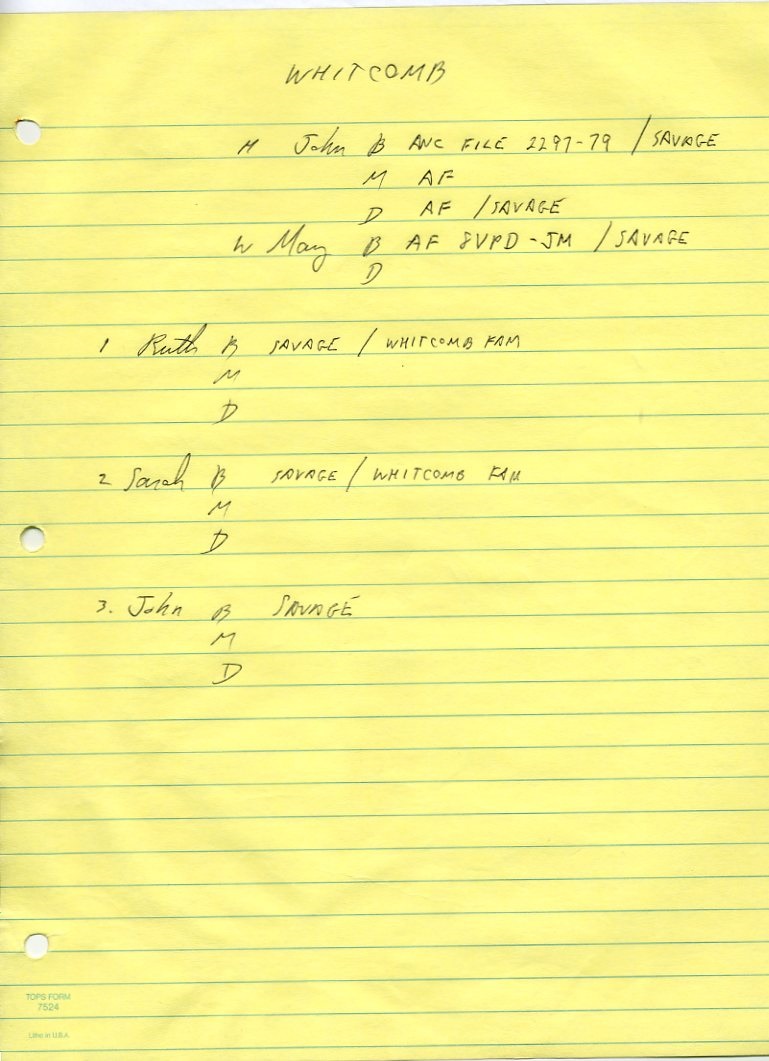 WHITCOMB
H John B ANC FILE 2297-79 / SAVAGE
M AF
D AF / SAVAGE
W Mary B AF 8VPD-JM / SAVAGE
D
1 Ruth B SAVAGE / WHITCOMB FAM
M
D
2 Sarah B SAVAGE / WHITCOMB FAM
M
D
3. John B SAVAGE
M
D
TOPS FORM
7524
Litho in U.S.A.